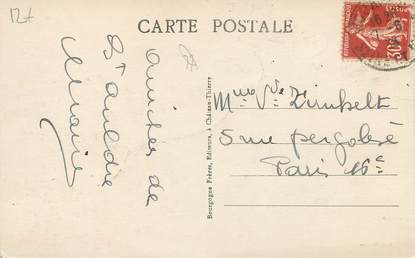 127
CARTE POSTALE
30c
amitiés de
St Auldie
Marie
Bourgogne Frères, Editeurs, à Château-Thierry
Mme Vve
5 rue pergolèse
Paris 16e